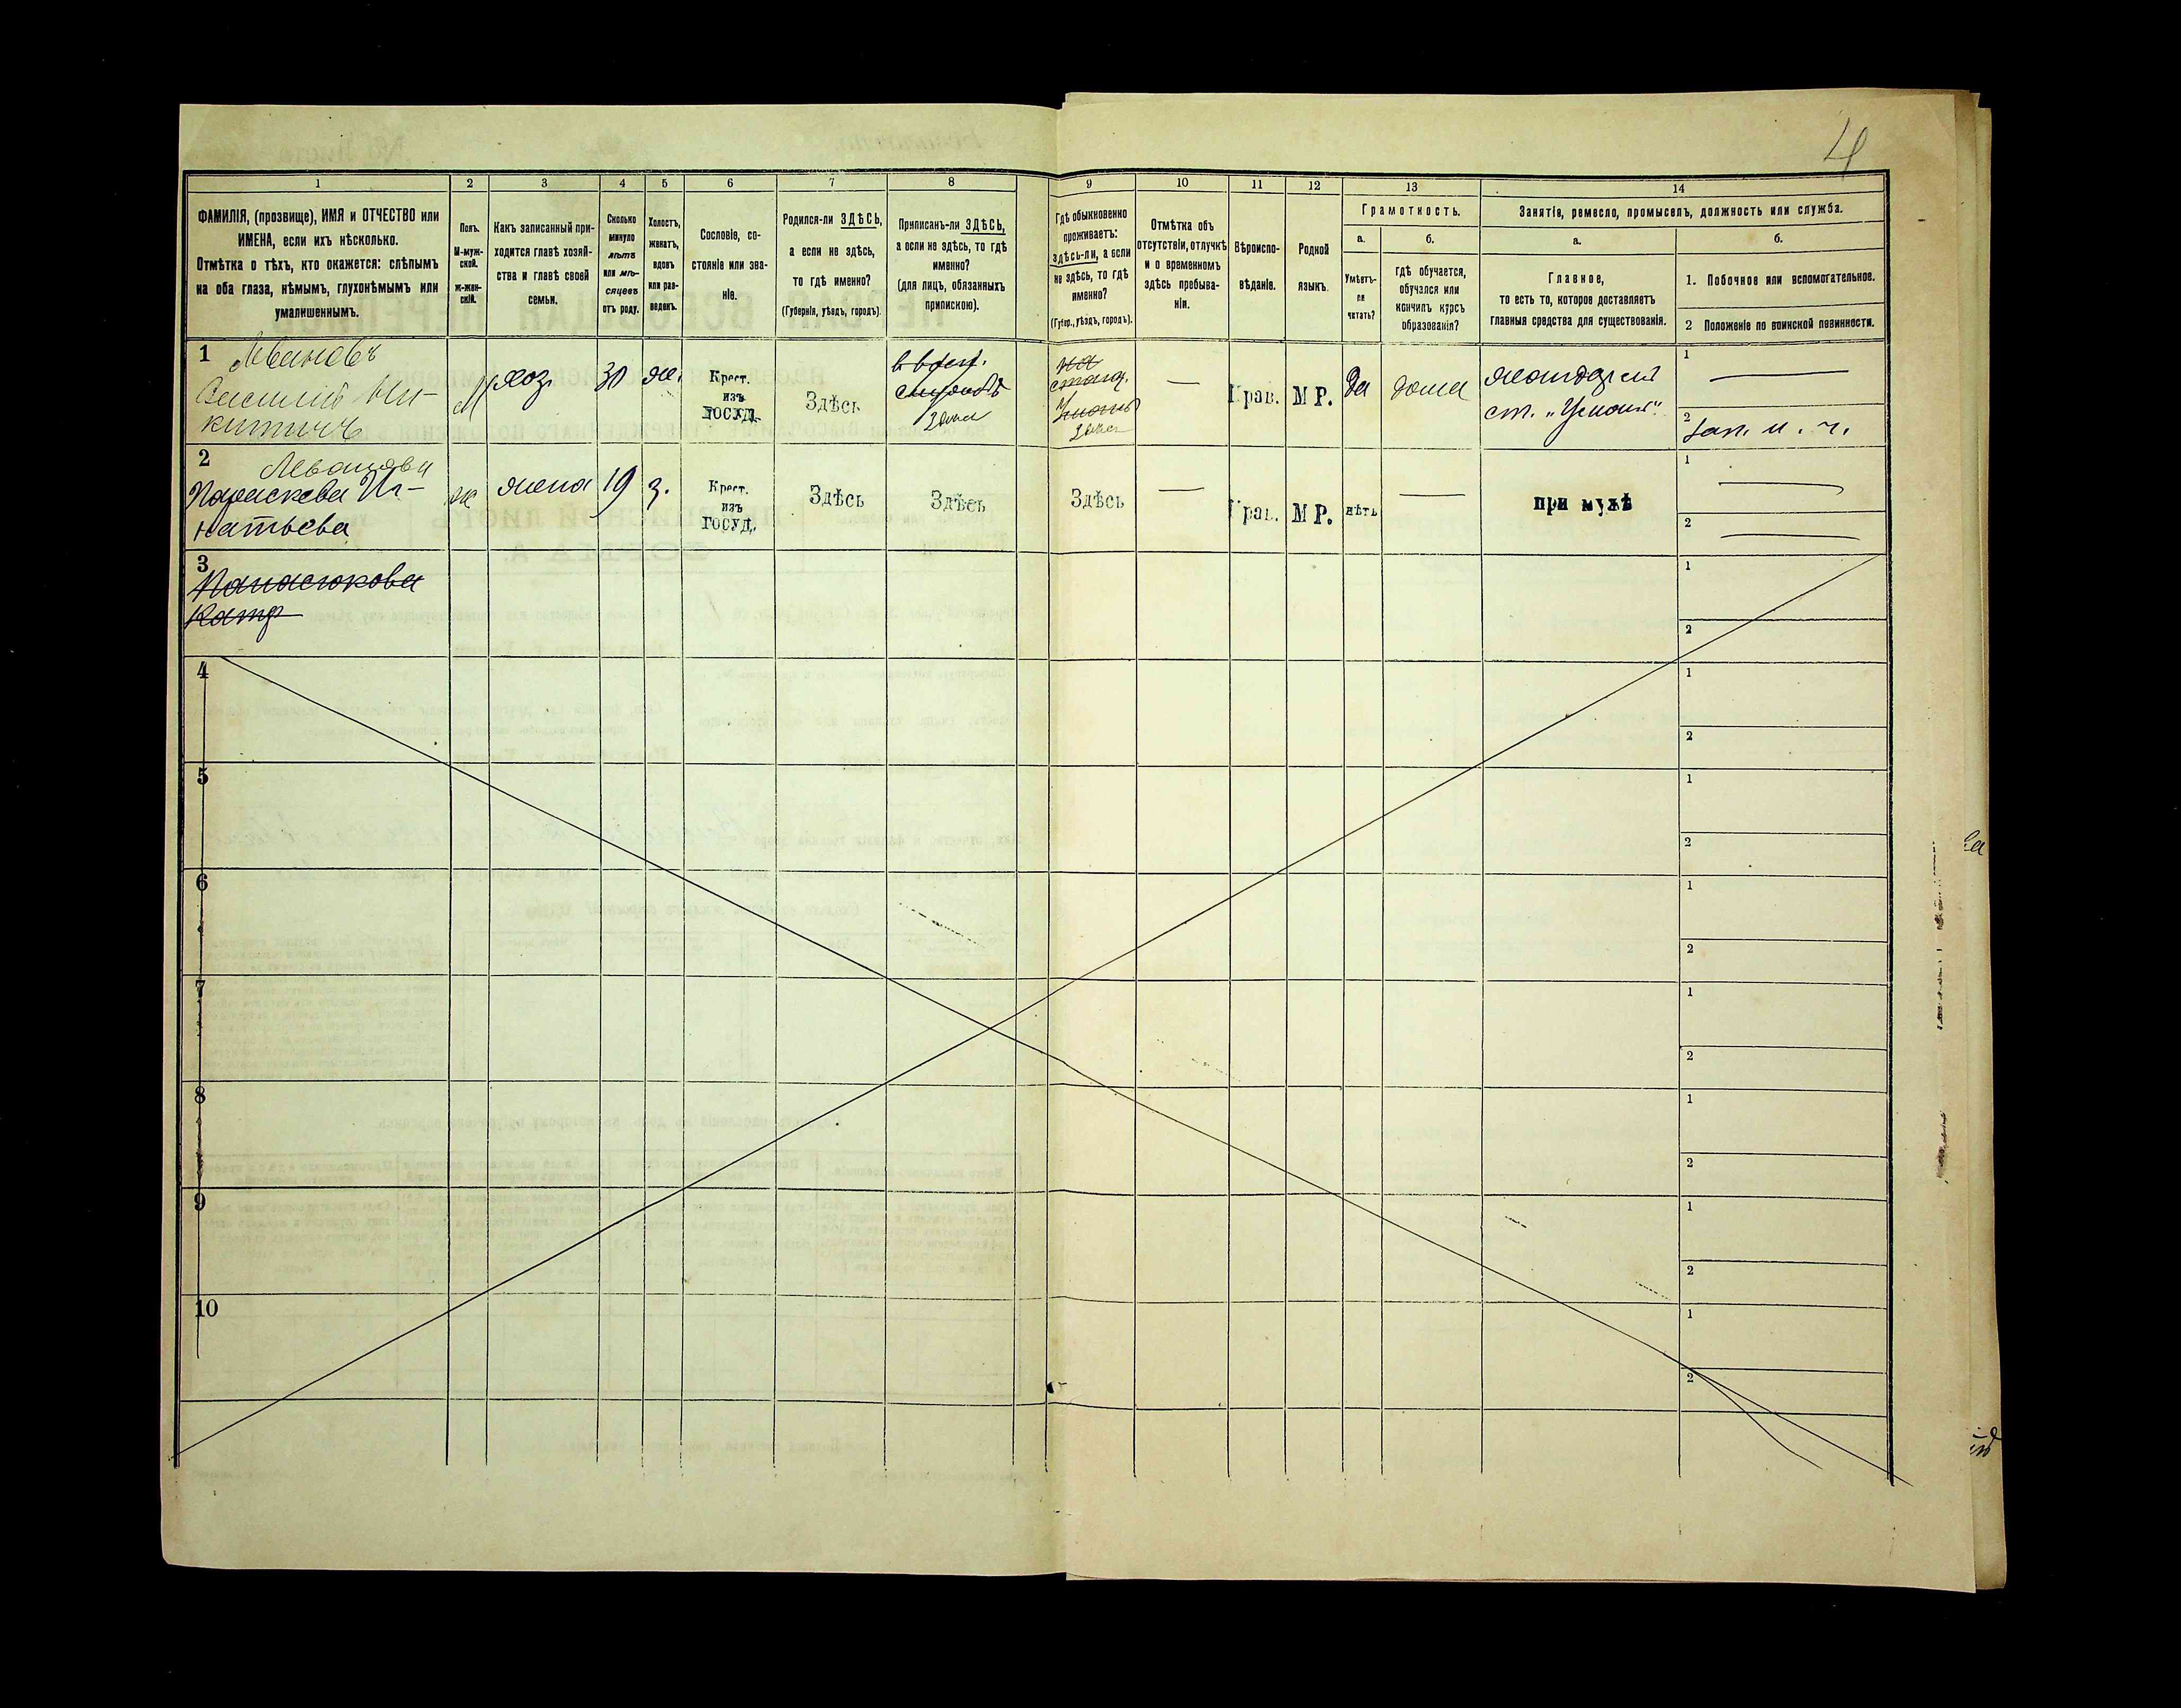 4
1 2 3 4 5 6 7 8 9 10 11 12 13 14
ФАМИЛІЯ, (прозвище), ИМЯ и ОТЧЕСТВО или
ИМЕНА, если ихъ нѣсколько.
Отмѣтка о тѣхъ, кто окажется: слѣпымъ
на оба глаза, нѣмымъ, глухонѣмымъ или
умалишеннымъ.
Полъ.
М-муж-
ской.
ж-жен-
скій.
Какъ записанный при-
ходится главѣ хозяй-
ства и главѣ своей
семьи.
Сколько
минуло
лѣтъ
или мѣ-
сяцевъ
отъ роду.
Холостъ,
женатъ,
вдовъ
или раз-
веденъ.
Сословіе, со-
стояніе или зва-
ніе.
Родился-ли ЗДѢСЬ,
а если не здѣсь,
то гдѣ именно?
(Губернія, уѣздъ, городъ).
Приписанъ-ли ЗДѢСЬ,
а если не здѣсь, то гдѣ
именно?
(для лицъ, обязанныхъ
припискою).
Гдѣ обыкновенно
проживаетъ:
здѣсь-ли, а если
не здѣсь, то гдѣ
именно?
(Губер., уѣздъ, городъ).
Отмѣтка объ
отсутствіи, отлучкѣ
и о временномъ
здѣсь пребыва-
ніи.
Вѣроиспо-
вѣданіе.
Родной
языкъ.
Грамотность.
а.
Умѣетъ-
ли
читать?
б.
гдѣ обучается,
обучался или
кончилъ курсъ
образованія?
Занятіе, ремесло, промыселъ, должность или служба.
а.
Главное,
то есть то, которое доставляетъ
главныя средства для существованія.
б.
1. Побочное или вспомогательное.
2 Положеніе по воинской повинности.
1
Василій Ни-
китичъ
М
хоз.
30
же.
Крест.
изъ
ГОСУД.
Здѣсь
Прав.
МР.
да
дома
жандарм
ст.
1
2 зап. н. ч.
2
Параскева Иг-
натьева
ж
жена
19
з.
Крест.
изъ
ГОСУД.
Здѣсь
Здѣсь
Здѣсь
Прав.
МР.
нѣтъ
при мужѣ
1
2
3
Панасюкова
Катр
1
2
4
1
2
5
1
2
6
1
2
7
1
2
8
1
2
9
1
2
10
1
2